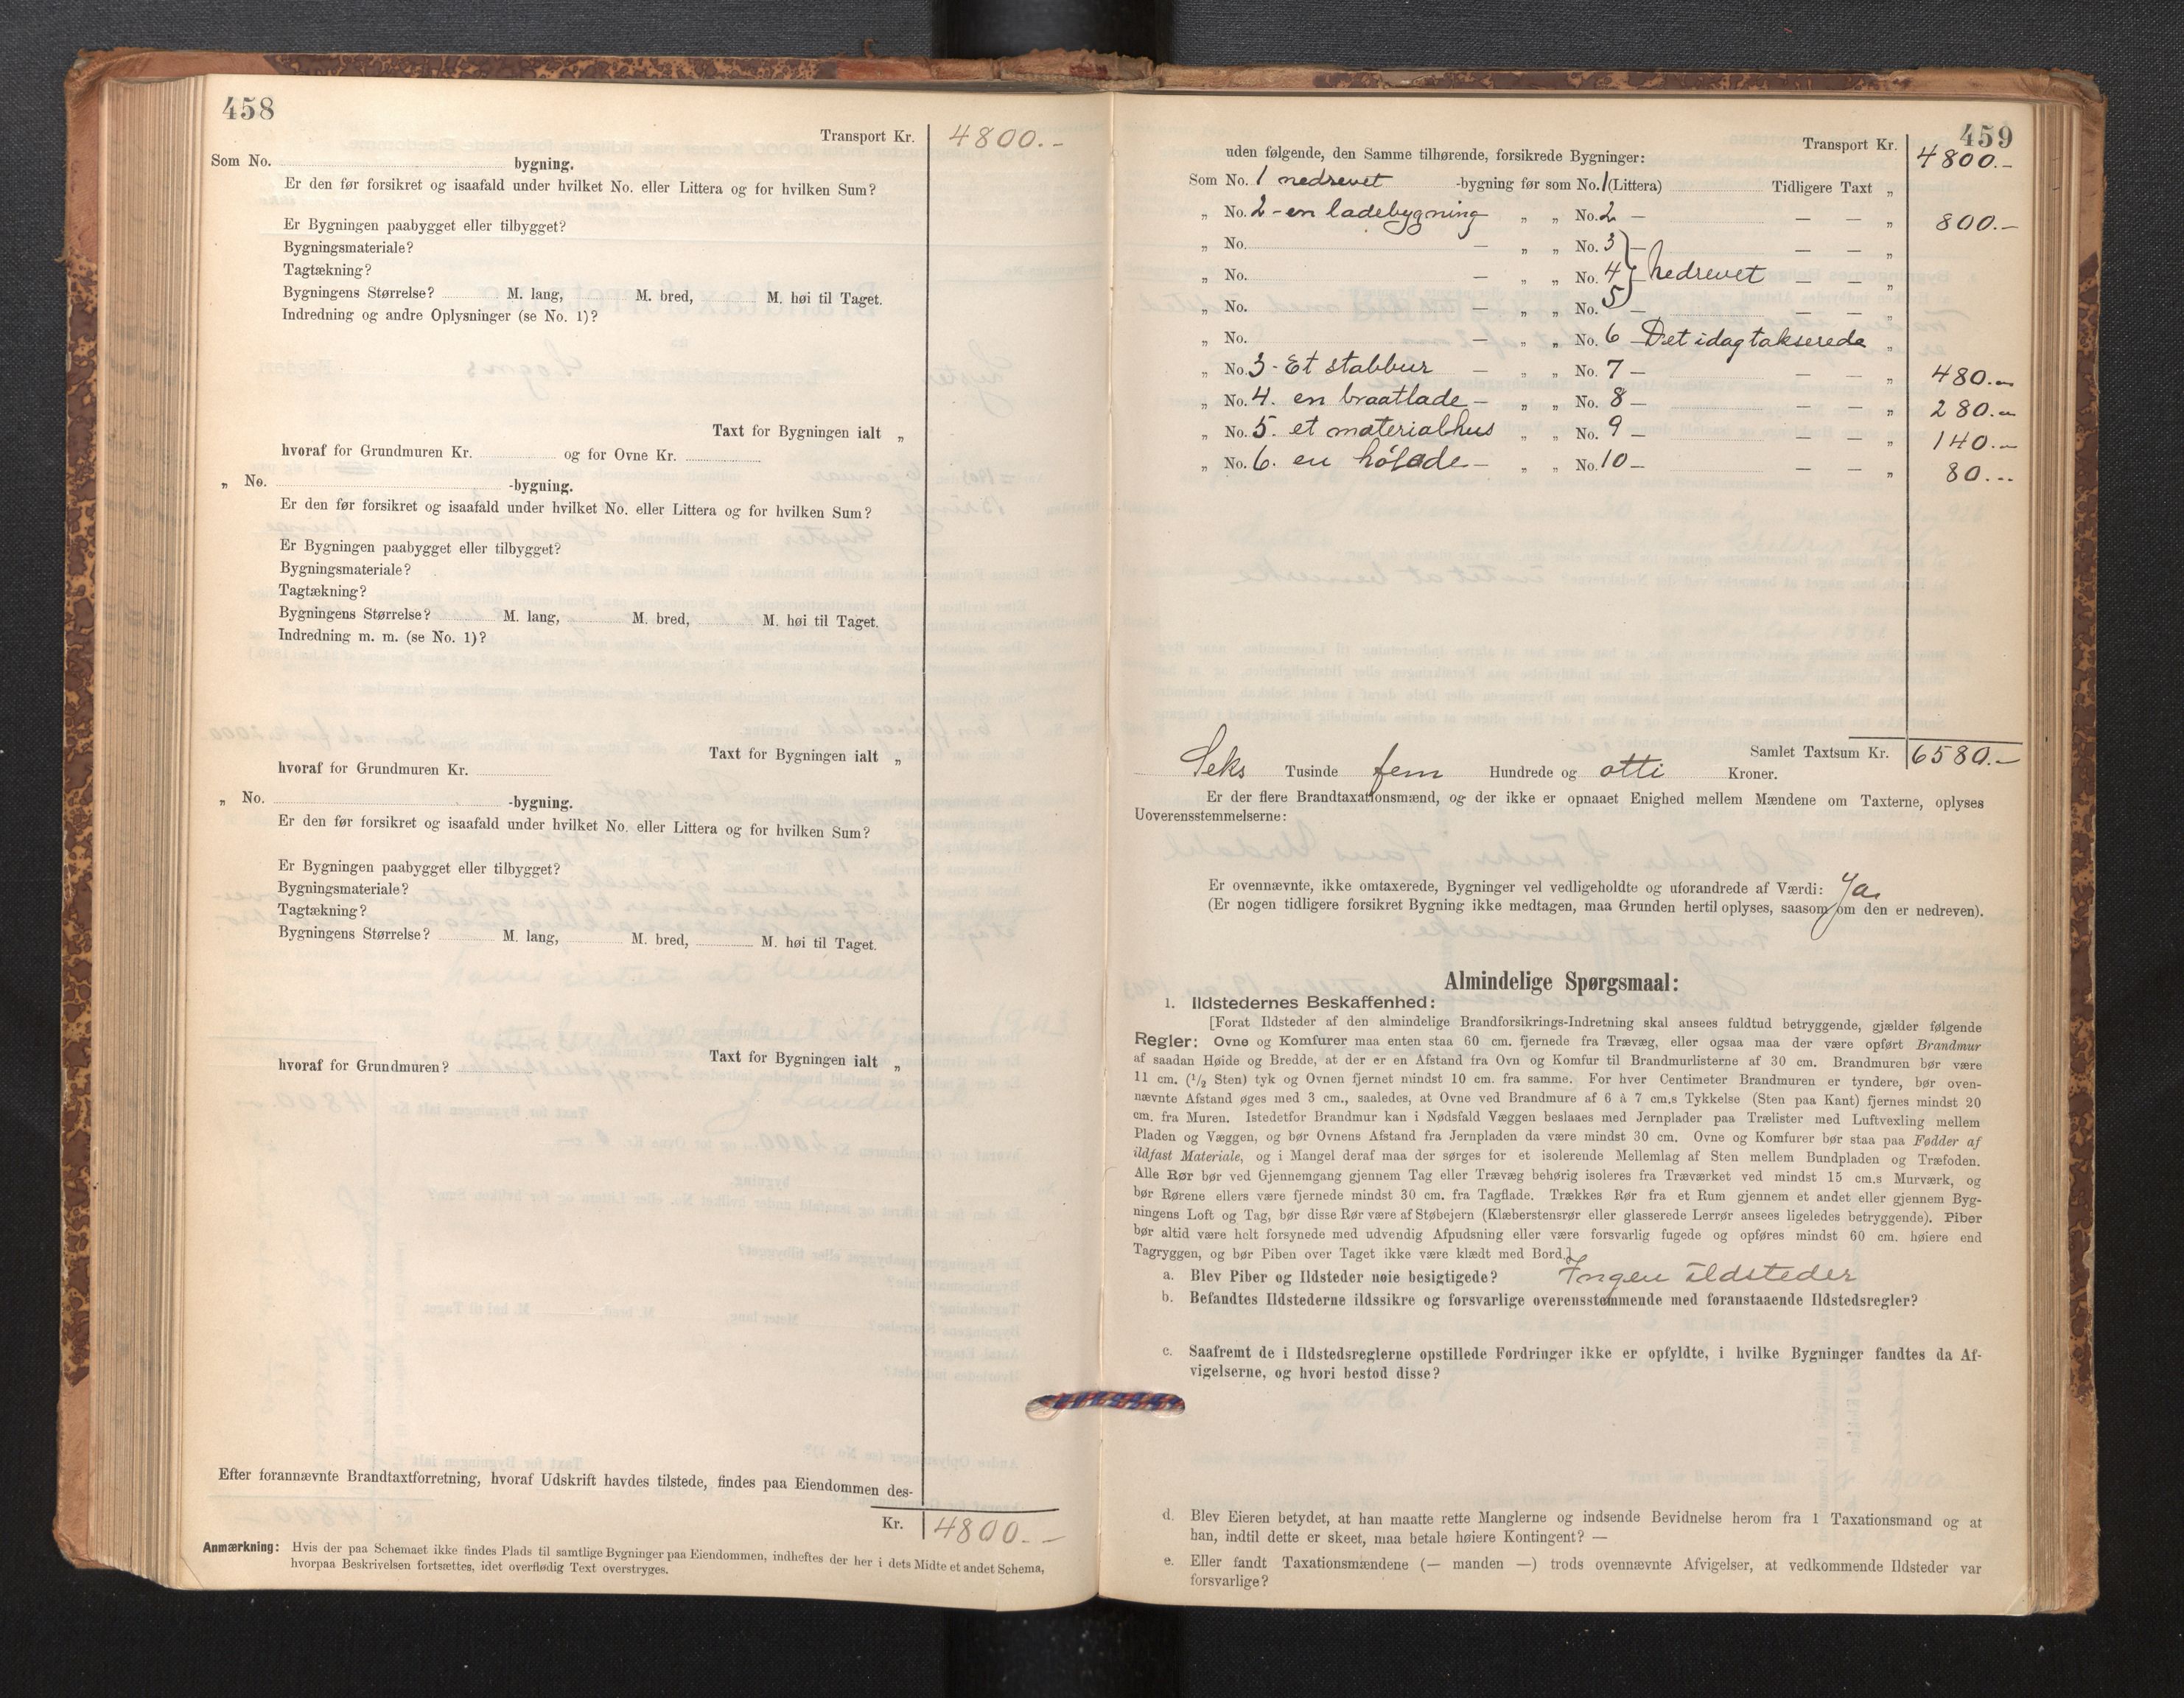 458
Transport Kr. 4800.-
Som No. bygning.
Er den før forsikret og isaafald under hvilket No. eller Littera og for hvilken Sum?
Er Bygningen paabygget eller tilbygget?
Bygningsmateriale?
Tagtækning?
Bygningens Størrelse? M. lang, M. bred, M. høi til Taget.
Indredning og andre Oplysninger (se No. 1)?
Taxt for Bygningen ialt „
hvoraf for Grundmuren Kr. og for Ovne Kr.
„ No. -bygning.
Er den før forsikret og isaafald under hvilket No. eller Littera og for hvilken Sum?
Er Bygningen paabygget eller tilbygget?
Bygningsmateriale?
Tagtækning?
Bygningens Størrelse? M. lang, M. bred, M. høi til Taget.
Indredning m. m. (se No. 1)?
Taxt for Bygningen ialt „
hvoraf for Grundmuren Kr.
„ No. -bygning.
Er den før forsikret og isaafald under hvilket No. eller Littera og for hvilken Sum?
Er Bygningen paabygget eller tilbygget?
Bygningsmateriale?
Tagtækning?
Bygningens Størrelse? M. lang, M. bred, M. høi til Taget.
Taxt for Bygningen ialt „
hvoraf for Grundmuren?
Efter forannævnte Brandtaxtforretning, hvoraf Udskrift havdes tilstede, findes paa Eiendommen des-
Kr. 4800.-
Anmærkning: Hvis der paa Schemaet ikke findes Plads til samtlige Bygninger paa Eiendommen, indheftes der her i dets Midte et andet Schema,
hvorpaa Beskrivelsen fortsættes, idet overflødig Text overstryges.
459
Transport Kr. 4800.-
uden følgende, den Samme tilhørende, forsikrede Bygninger:
Som No. 1 nedrevet -bygning før som No. 1 (Littera) Tidligere Taxt „
„ No. 2 - en ladebygning „ „ No. 2 — — — „ 800.-
„ No. — „ „ No. 3 — — — „
„ No. — „ „ No. 4 nedrevet — — „
„ No. — „ „ No. 5 — — — „
„ No. — „ „ No. 6 Det idag takserede „
„ No. 3 - Et stabbur — „ „ No. 7 — — — „ 480.-
„ No. 4. en braatlade — „ „ No. 8 — — — „ 280.-
„ No. 5. et materialhus „ „ No. 9 — — — „ 140.-
„ No. 6. en hölade — „ „ No. 10 — — — „ 80.-
Samlet Taxtsum Kr. 6580.-
Seks Tusinde fem Hundrede og otti Kroner.
Er der flere Brandtaxationsmænd, og der ikke er opnaaet Enighed mellem Mændene om Taxterne, oplyses
Uoverensstemmelserne:
Er ovennævnte, ikke omtaxerede, Bygninger vel vedligeholdte og uforandrede af Værdi: Ja
(Er nogen tidligere forsikret Bygning ikke medtagen, maa Grunden hertil oplyses, saasom om den er nedreven).
Almindelige Spørgsmaal:
1. Ildstedernes Beskaffenhed:
[Forat Ildsteder af den almindelige Brandforsikrings-Indretning skal ansees fuldtud betryggende, gjælder følgende
Regler: Ovne og Komfurer maa enten staa 60 cm. fjernede fra Trævæg, eller ogsaa maa der være opført Brandmur
af saadan Høide og Bredde, at der er en Afstand fra Ovn og Komfur til Brandmurlisterne af 30 cm. Brandmuren bør være
11 cm. (1/2 Sten) tyk og Ovnen fjernet mindst 10 cm. fra samme. For hver Centimeter Brandmuren er tyndere, bør oven-
nævnte Afstand øges med 3 cm., saaledes, at Ovne ved Brandmure af 6 à 7 cm.s Tykkelse (Sten paa Kant) fjernes mindst 20
cm. fra Muren. Istedetfor Brandmur kan i Nødsfald Væggen beslaaes med Jernplader paa Trælister med Luftvexling mellem
Pladen og Væggen, og bør Ovnens Afstand fra Jernpladen da være mindst 30 cm. Ovne og Komfurer bør staa paa Fødder af
ildfast Materiale, og i Mangel deraf maa der sørges for et isolerende Mellemlag af Sten mellem Bundpladen og Træfoden.
Alle Rør bør ved Gjennemgang gjennem Tag eller Trævæg behørig isoleres fra Træværket ved mindst 15 cm.s Murværk, og
bør Rørene ellers være fjernede mindst 30 cm. fra Tagflade. Trækkes Rør fra et Rum gjennem et andet eller gjennem Byg-
ningens Loft og Tag, bør disse Rør være af Støbejern (Klæberstensrør eller glasserede Lerrør ansees ligeledes betryggende). Piber
bør altid være helt forsynede med udvendig Afpudsning eller være forsvarlig fugede og opføres mindst 60 cm. høiere end
Tagryggen, og bør Piben over Taget ikke være klædt med Bord.]
a. Blev Piber og Ildsteder nøie besigtigede? Ingen ildsteder
b. Befandtes Ildstederne ildssikre og forsvarlige overensstemmende med foranstaaende Ildstedsregler?
c. Saafremt de i Ildstedsreglerne opstillede Fordringer ikke er opfyldte, i hvilke Bygninger fandtes da Af-
vigelserne, og hvori bestod disse?
d. Blev Eieren betydet, at han maatte rette Manglerne og indsende Bevidnelse herom fra 1 Taxationsmand og at
han, indtil dette er skeet, maa betale høiere Kontingent? —
e. Eller fandt Taxationsmændene (— manden —) trods ovennævnte Afvigelser, at vedkommende Ildsteder var
forsvarlige?